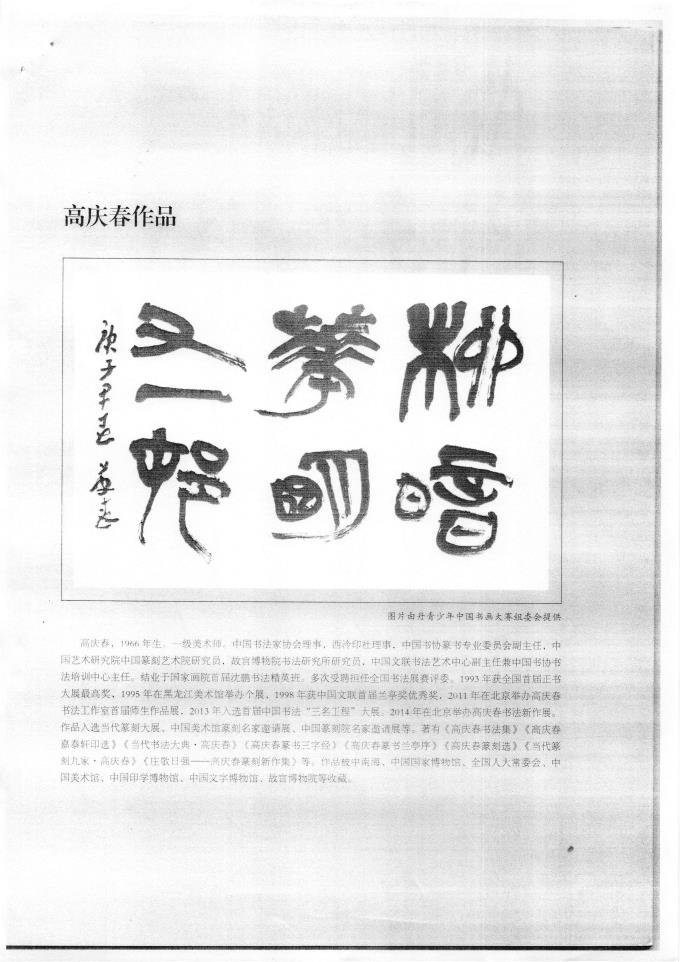 高庆春作品
柳暗
華明
又一邨
庚子早春 慶春
图片由丹青少年中国书画大赛组委会提供
高庆春，1966 年生。一级美术师。中国书法家协会理事，西泠印社理事，中国书协篆书专业委员会副主任，中
国艺术研究院中国篆刻艺术院研究员，故宫博物院书法研究所研究员，中国文联书法艺术中心副主任兼中国书协书
法培训中心主任。结业于国家画院首届沈鹏书法精英班。多次受聘担任全国书法展赛评委。1993 年获全国首届正书
大展最高奖，1995 年在黑龙江美术馆举办个展，1998 年获中国文联首届兰亭奖优秀奖，2011 年在北京举办高庆春
书法工作室首届师生作品展，2013 年入选首届中国书法“三名工程”大展。2014 年在北京举办高庆春书法新作展。
作品入选当代篆刻大展、中国美术馆篆刻名家邀请展、中国篆刻院名家邀请展等。著有《高庆春书法集》《高庆春
嘉泰轩印选》《当代书法大典·高庆春》《高庆春篆书三字经》《高庆春篆书兰亭序》《高庆春篆刻选》《当代篆
刻九家·高庆春》《庄敬日强——高庆春篆刻新作集》等。作品被中南海、中国国家博物馆、全国人大常委会、中
国美术馆、中国印学博物馆、中国文字博物馆、故宫博物院等收藏。